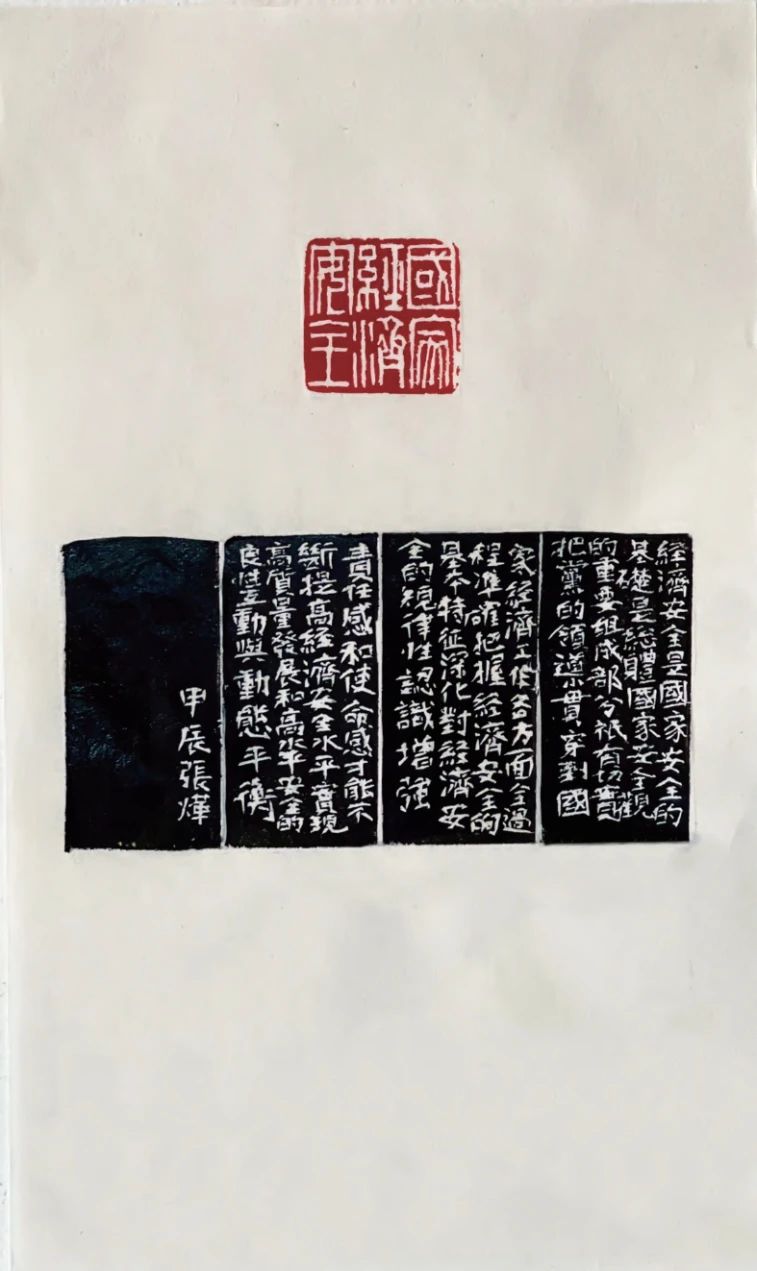 國家
經濟
安全
經濟安全是國家安全的
基礎是總體國家安全觀
的重要組成部分祇有切實
把黨的領導貫穿到國
家經濟工作各方面全過
程準確把握經濟安全的
基本特征深化對經濟安
全的規律性認識增強
責任感和使命感才能不
斷提高經濟安全水平實現
高質量發展和高水平安全的
良性互動與動態平衡
甲辰張燁